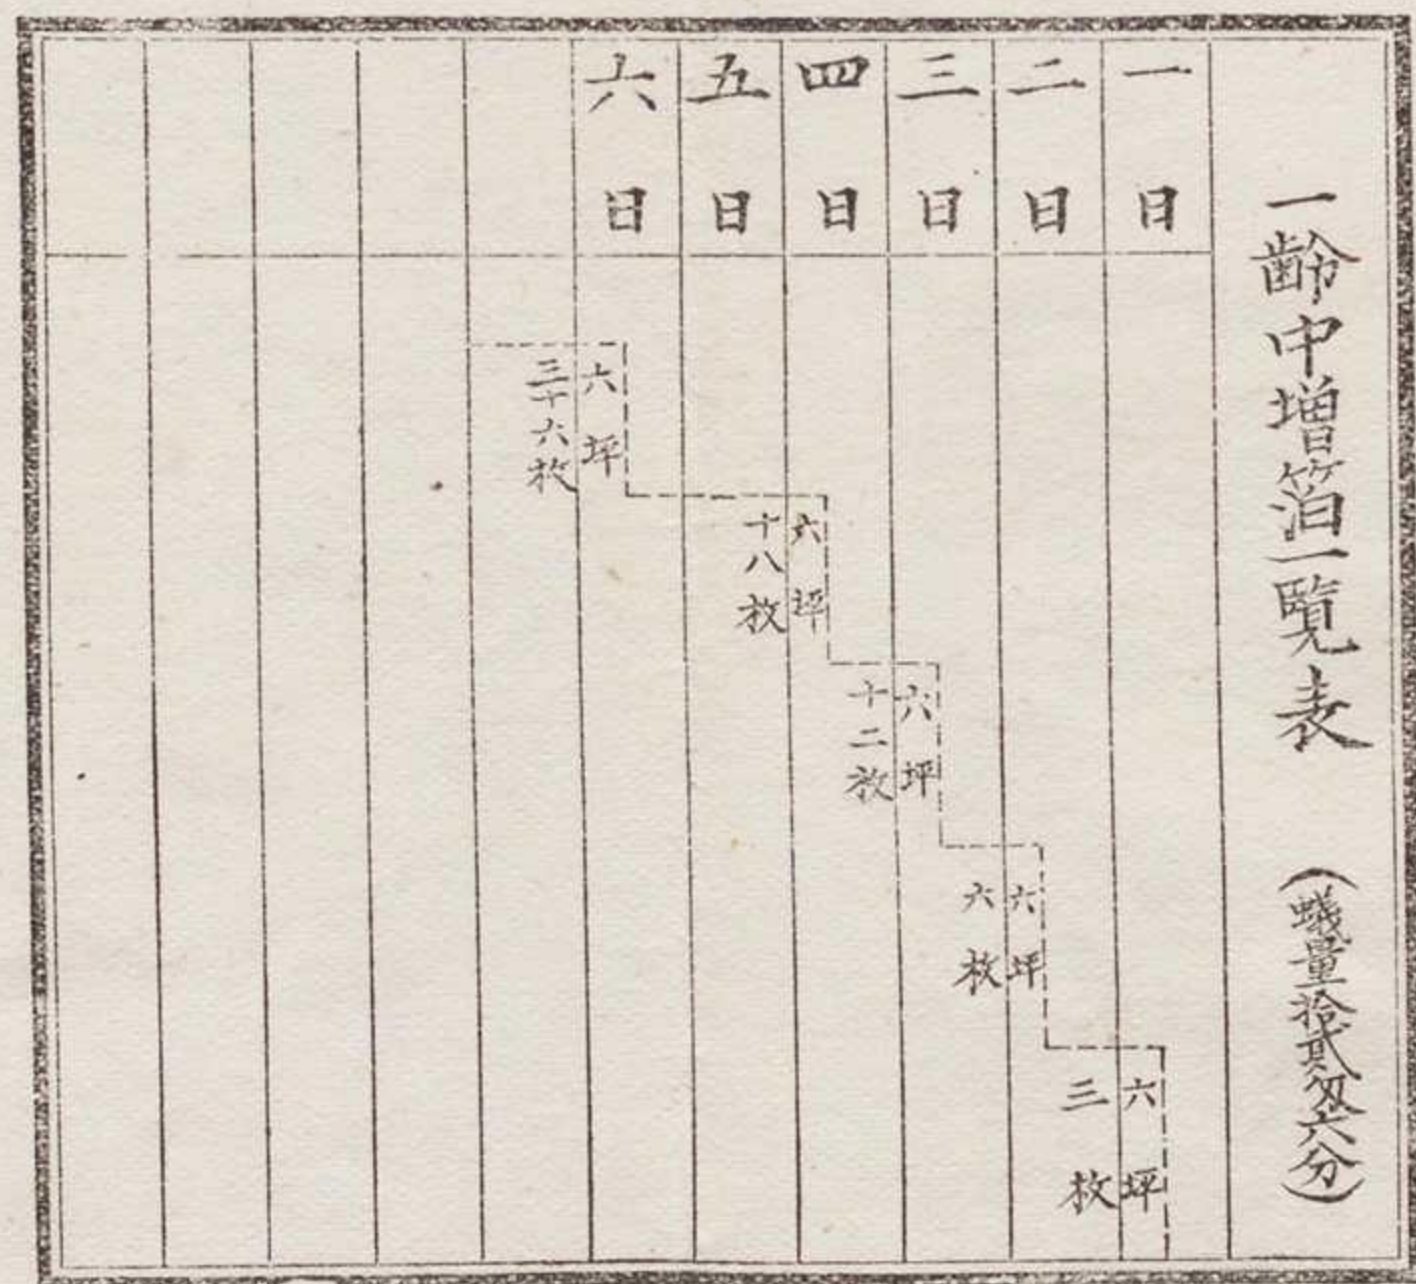 一齢中増箔一覧表 (蟻量拾貳匁六分)
一日
二日
三日
四日
五日
六日
六坪
三枚
六坪
六枚
六坪
十二枚
六坪
十八枚
六坪
三十六枚